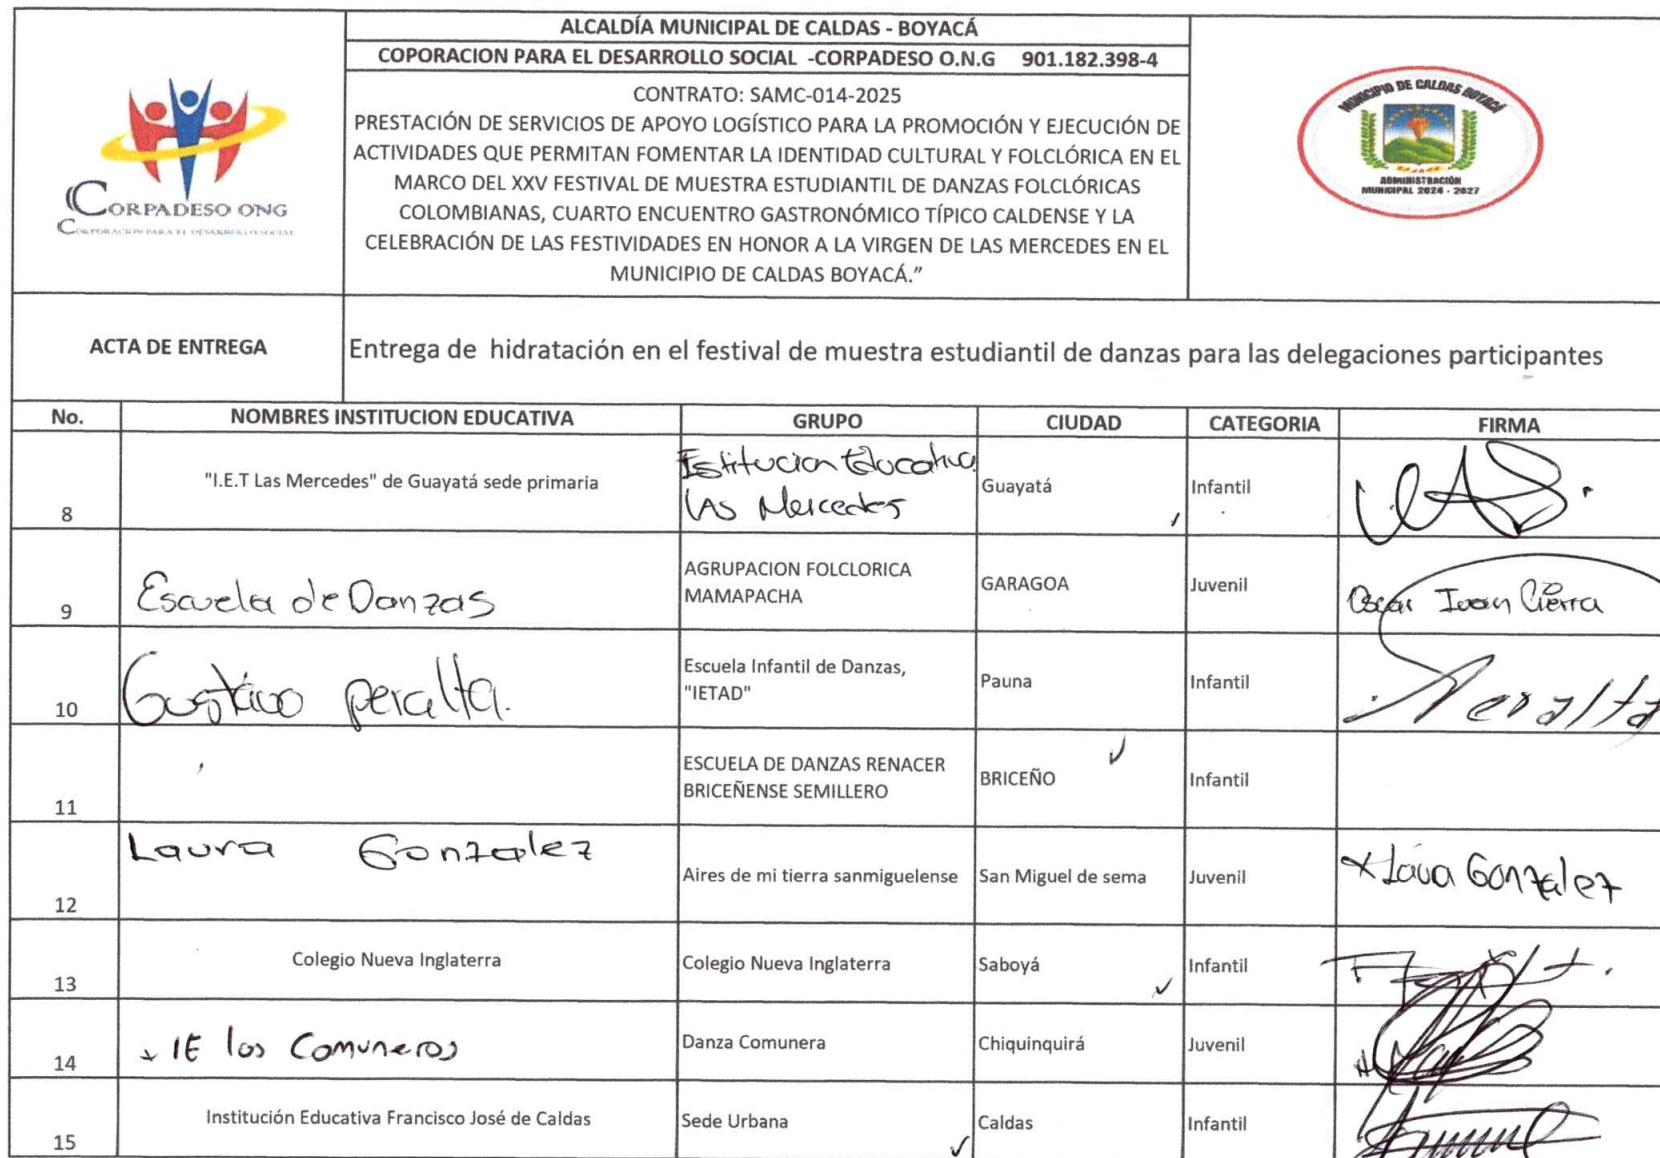 ALCALDÍA MUNICIPAL DE CALDAS - BOYACÁ
COPORACION PARA EL DESARROLLO SOCIAL -CORPADESO O.N.G 901.182.398-4
CORPADESO ONG
CORPORACION PARA EL DESARROLLO SOCIAL
CONTRATO: SAMC-014-2025
PRESTACIÓN DE SERVICIOS DE APOYO LOGÍSTICO PARA LA PROMOCIÓN Y EJECUCIÓN DE
ACTIVIDADES QUE PERMITAN FOMENTAR LA IDENTIDAD CULTURAL Y FOLCLÓRICA EN EL
MARCO DEL XXV FESTIVAL DE MUESTRA ESTUDIANTIL DE DANZAS FOLCLÓRICAS
COLOMBIANAS, CUARTO ENCUENTRO GASTRONÓMICO TÍPICO CALDENSE Y LA
CELEBRACIÓN DE LAS FESTIVIDADES EN HONOR A LA VIRGEN DE LAS MERCEDES EN EL
MUNICIPIO DE CALDAS BOYACÁ.”
MUNICIPIO DE CALDAS BOYACÁ
ADMINISTRACIÓN
MUNICIPAL 2024 - 2027
ACTA DE ENTREGA Entrega de hidratación en el festival de muestra estudiantil de danzas para las delegaciones participantes
No. NOMBRES INSTITUCION EDUCATIVA GRUPO CIUDAD CATEGORIA FIRMA
8 "I.E.T Las Mercedes" de Guayatá sede primaria Istitucion Educativa
LAS Mercedes Guayatá Infantil
9 Escuela de Danzas AGRUPACION FOLCLORICA
MAMAPACHA GARAGOA Juvenil Oscar Ivan Cierra
10 Gustavo peralta. Escuela Infantil de Danzas,
"IETAD" Pauna Infantil Peralta
11 ESCUELA DE DANZAS RENACER
BRICEÑENSE SEMILLERO BRICEÑO Infantil
12 Laura Gonzalez Aires de mi tierra sanmiguelense San Miguel de sema Juvenil x Laura Gonzalez
13 Colegio Nueva Inglaterra Colegio Nueva Inglaterra Saboyá Infantil
14 IE los Comuneros Danza Comunera Chiquinquirá Juvenil
15 Institución Educativa Francisco José de Caldas Sede Urbana Caldas Infantil